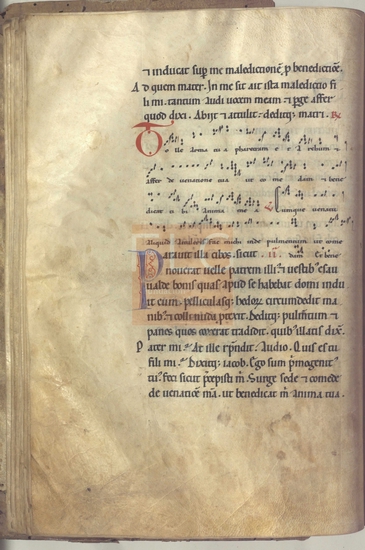 ⁊ inducat sup me maledictionē p benedictiōe.
Ad quem mater. In me sit ait ista maledictio fi
li mi. tantum audi uocem meam ⁊ pge affer
quod dixi. Abijt ⁊ attulit. deditq; matri. R
Tolle arma tua pharetram et arcum ⁊
affer de uenatione tua ut comedam ⁊ bene
dicat tibi anima mea V Cumque uenatu
aliquid attuleris fac michi inde pulmentum ut come
Parauit illa cibos. sicut. II. dam Et bene
nouerat uelle patrem illi⁹ ⁊ uestib⁹ esau
ualde bonis quas apud se habebat domi indu
it eum. pelliculasq; hedorū circumdedit ma
nib⁹ ⁊ colli nuda ptexit. Deditq; pulmtum ⁊
panes quos coxerat tradidit. quib⁹ illatis dix̄.
Pater mi. At ille rn̄dit. Audio. Quis es tu
fili mi. Dixitq; iacob. Ego sum pmogenit⁹
tu⁹. feci sicut pcepisti m̄. Surge sede ⁊ comede
de uenatiōe mēa. ut benedicat m̄ anima tua.